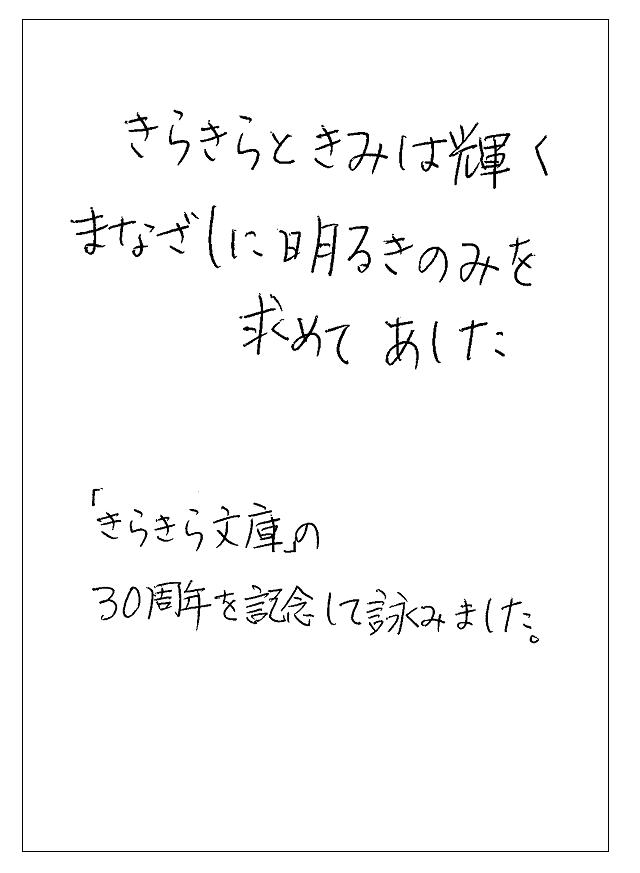 きらきらときみは輝く
まなざしに明るきのみを
求めてあした
「きらきら文庫」の
30周年を記念して詠みました。